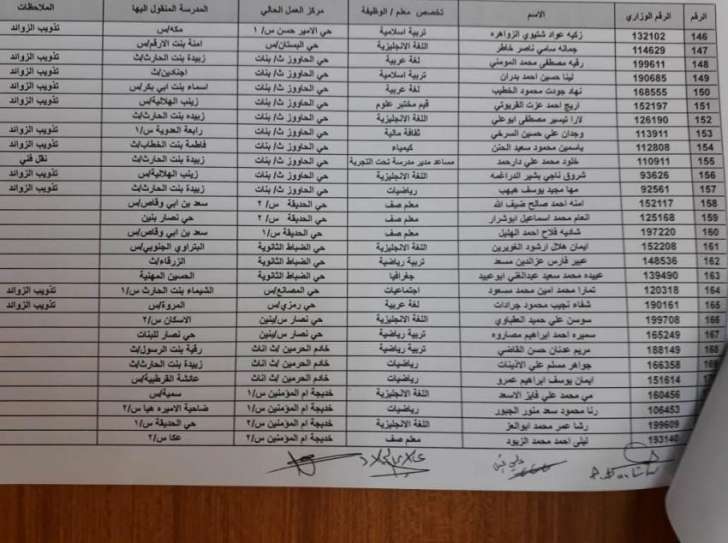 الرقم الرقم الوزاري الاسم تخصص معلم / الوظيفة مركز العمل الحالي المدرسة المنقول اليها الملاحظات
146 132102 زكيه عواد شتيوي الزواهره تربية اسلامية حي الامير حسن س/ ١ مكه/س تذويب الزوائد
147 114629 جمانه سامي ناصر خاطر اللغة الانجليزية حي البستان/س امنة بنت الارقم/س
148 199611 رقيه مصطفى محمد المومني لغة عربية حي الحاووز ث/ بنات زبيدة بنت الحارث/ث تذويب الزوائد
149 190685 لينا حسين احمد بدران تربية اسلامية حي الحاووز ث/ بنات اجنادين/ث تذويب الزوائد
150 168555 نهاد جودت محمود الخطيب لغة عربية حي الحاووز ث/ بنات اسماء بنت ابي بكر/س تذويب الزوائد
151 152197 اريج احمد عزت القريوتي قيم مختبر علوم حي الحاووز ث/ بنات زينب الهلالية/س تذويب الزوائد
152 126190 لارا تيسير مصطفى ابوعلي اللغة الانجليزية حي الحاووز ث/ بنات زبيده بنت الحارث/ث
153 113911 وجدان علي حسين السرخي ثقافة مالية حي الحاووز ث/ بنات رابعة العدوية س/١ تذويب الزوائد
154 112808 ياسمين محمود سعيد الحتن كيمياء حي الحاووز ث/ بنات فاطمة بنت الخطاب/ث تذويب الزوائد
155 110911 خلود محمد علي دارحمد مساعد مدير مدرسة تحت التجربة حي الحاووز ث/ بنات زبيدة بنت الحارث/ث نقل فني
156 93626 شروق ناجي بشير الدراغمه اللغة الانجليزية حي الحاووز ث/ بنات زينب الهلالية/س تذويب الزوائد
157 92561 مها مجيد يوسف هيهب رياضيات حي الحاووز ث/ بنات زبيدة بنت الحارث/ث تذويب الزوائد
158 152117 امنه احمد صالح ضيف الله معلم صف حي الحديقة س/ ٢ سعد بن ابي وقاص/س
159 125168 انعام محمد اسماعيل ابوشرار معلم صف حي الحديقة س/ ٢ حي نصار بنين
160 197220 شاديه فلاح احمد الهليل معلم صف حي الحديقة س/١ سعد بن ابي وقاص/س
161 152208 ايمان هلال ارشود الغويرين اللغة الانجليزية حي الضباط الثانوية البتراوي الجنوبي/س
162 148536 عبير فارس عزالدين مسعد تربية رياضية حي الضباط الثانوية الزرقاء/ث
163 139490 عبيده محمد سعيد عبدالغني ابوعبيد جغرافيا حي الضباط الثانوية الحسين المهنية
164 120318 تمارا محمد امين محمد مسعود اجتماعيات حي المصانع/س الشيماء بنت الحارث س/١ تذويب الزوائد
165 190161 شفاء نجيب محمود جرادات لغة عربية حي رمزي/س المروة/س تذويب الزوائد
166 199708 سوسن علي حميد العطياوي اللغة الانجليزية حي نصار س/بنين الاسكان س/٢
167 165249 سميره احمد ابراهيم مصاروه تربية رياضية حي نصار س/بنين حي نصار للبنات
168 188149 مريم عدنان حسن القاضي تربية رياضية خادم الحرمين /ث اناث رقية بنت الرسول/ث
166358 جواهر مسلم علي الاذينات رياضيات خادم الحرمين /ث اناث زبيدة بنت الحارث/ث
151614 ايمان يوسف ابراهيم عمرو رياضيات خادم الحرمين /ث اناث عائشة القرطبية/س
160456 مي محمد علي فايز الاسعد اللغة الانجليزية خديجة ام المؤمنين س/١ سمية/س
106453 رنا محمود سعد منور الجبور رياضيات خديجة ام المؤمنين س/٢ ضاحية الاميره هيا س/٢
199609 رشا عمر محمد ابوالعز اللغة الانجليزية خديجة ام المؤمنين س/٢ حي الحديقة س/١
193140 ليلى احمد محمد الزيود معلم صف خديجة ام المؤمنين س/٢ عكا س/٢